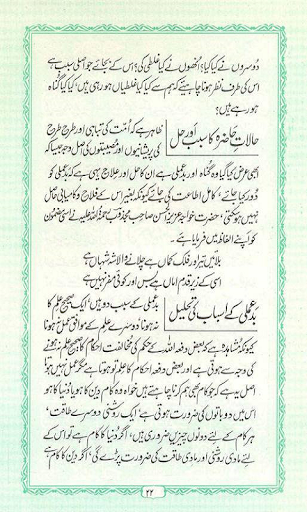 دوسروں نے کیا کیا؟ انھوں نے کیا غلطی کی؟ اس کے بجائے جو اصلی سبب ہے
اس کی طرف نظر ہونا چاہیئے کہ ہم سے کیا کیا غلطیاں ہو رہی ہیں، کیا کیا گناہ
ہو رہے ہیں؟
حالاتِ حاضرہ کا سبب اور حل
ظاہر ہے کہ اُمّت کی تباہی اور طرح طرح
کی پریشانیوں اور مصیبتوں کی اصل وجہ جیسا کہ
ابھی عرض کیا گیا وہ گناہ اور بدعملی ہے ان کا حل اور علاج یہی ہے کہ بدعملی کو
دُور کیا جائے، کامل اطاعت کی جائے کیونکہ بغیر اس کے فلاح و کامیابی حاصل
نہیں ہو سکتی، حضرت خواجہ عزیز الحسن صاحب مجذوب رحمۃ اللہ علیہ نے اسی مضمون
کو اپنے الفاظ میں فرمایا ہے۔
بلائیں تیر اور فلک کماں ہے چلانے والا شہِ شہاں ہے
اسی کے زیرِ قدم اماں ہے بس اور کوئی مفر نہیں ہے
بدعملی کے اسباب کی تحلیل
بدعملی کے سبب دو ہیں، ایک صحیح علم کا
نہ ہونا دوسرے علم کے موافق عمل نہ ہونا
کیونکہ مشاہدہ ہے کہ بعض دفعہ اللہ کے حکم کی مخالفت احکام کا صحیح علم نہ ہونے
کی وجہ سے ہوتی ہے اور بعض دفعہ احکام کا علم تو ہوتا ہے مگر عمل نہیں ہوتا
اصل یہ ہے کہ جو کام بھی ہم کرنا چاہتے ہیں خواہ وہ کام دین کا ہو یا دنیا کا ہو
اس میں دو باتوں کی ضرورت ہوتی ہے، ایک روشنی دوسرے طاقت،
ہر کام کے لئے دونوں چیزیں ضروری ہیں، اگر دنیا کا کام ہے تو اس کے
لئے مادی روشنی اور مادی طاقت کی ضرورت پڑے گی، اگر دین کا کام ہے
۲۲